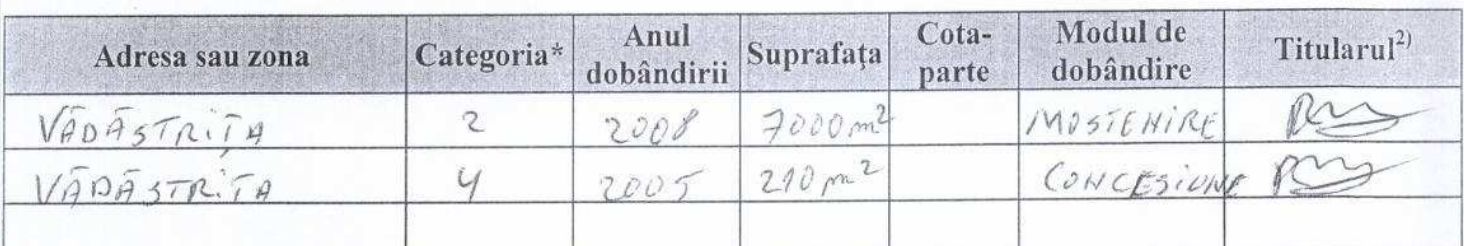 Adresa sau zona Categoria* Anul dobândirii Suprafața Cota-parte Modul de dobândire Titularul2)
VĂDĂSTRIȚA 2 2008 7000 m2 MOSTENIRE
VĂDĂSTRIȚA 4 2005 210 m2 CONCESIUNE